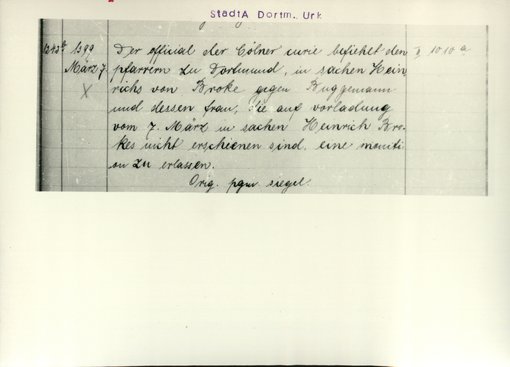 StadtA Dortm. Urk
1399 Der official der Cölner curie befiehlt den II, 1010 a
März 7. pfarrern zu Dortmund, in sachen Hein
X richs von Broke gegen Buggemann
und dessen frau, die auf vorladung
vom 7. März in sachen Heinrich Bro-
kes nicht erschienen sind eine moniti
on zu erlassen.
Orig. pgm. siegel.